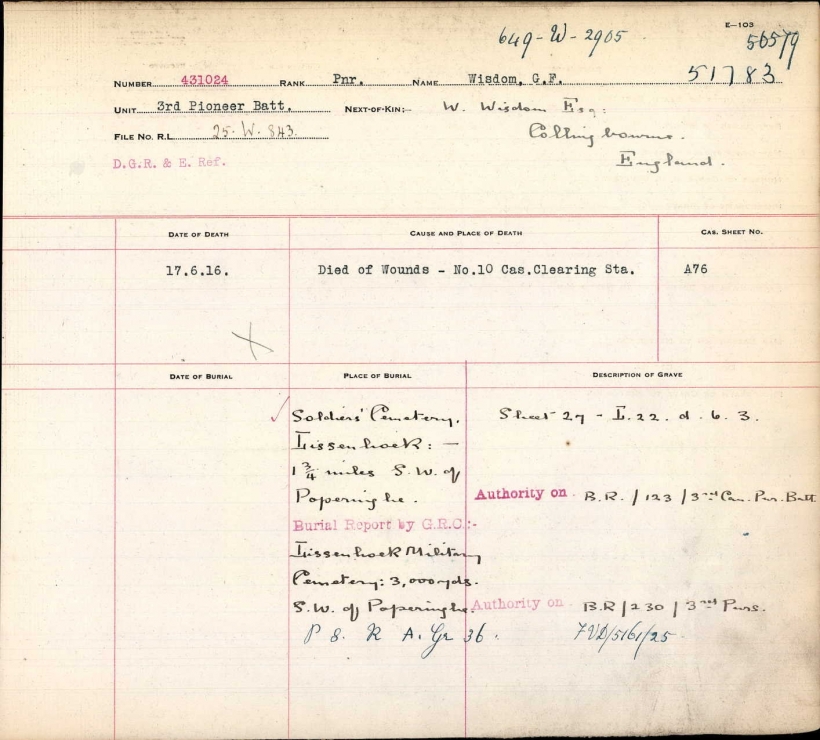 E—103
649-W-2905
56579
51783
NUMBER 431024 RANK Pnr. NAME Wisdom, G.F.
UNIT 3rd Pioneer Batt. NEXT-OF-KIN:— W. Wisdom Esq:
FILE NO. R.L. 25-W.843. Collingbourne.
D.G.R. & E. Ref. England.
DATE OF DEATH CAUSE AND PLACE OF DEATH CAS. SHEET NO.
17.6.16. Died of Wounds - No.10 Cas.Clearing Sta. A76
DATE OF BURIAL PLACE OF BURIAL DESCRIPTION OF GRAVE
Soldiers' Cemetery. Sheet 27 - L.22.d.6.3.
Lissenhoek: —
1 3/4 miles S.W. of
Poperinghe. Authority on B.R./123/3rd Can. Pnr. Batt
Burial Report by G.R.C.:-
Lissenhoek Military
Cemetery: 3,000yds.
S.W. of Poperinghe. Authority on B.R/230/3rd Pnrs.
P 8. R A. Gr 36. 7VD/5161/25